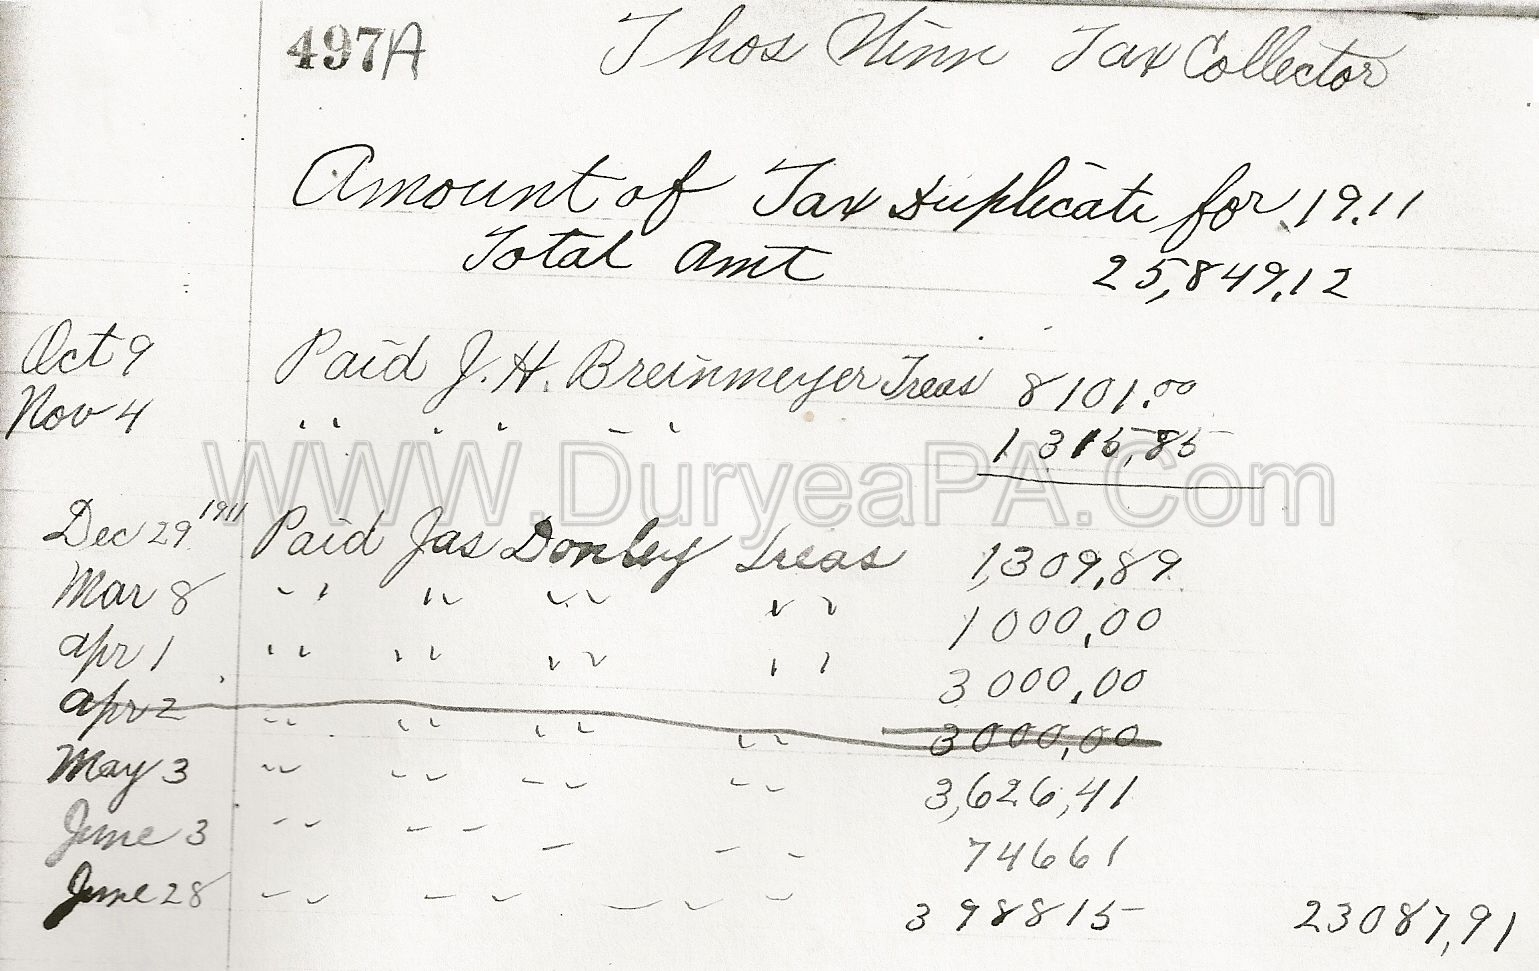 497A Thos Tax Collector
Amount of Tax Duplicate for 19.11
Total Amt 25,849.12
Oct 9 Paid J. H. Breinmeyer Treas 8101.00
Nov 4 " " " " " " 1315,85
WWW.DuryeaPA.Com
Dec 29 1911 Paid Jas Donley Treas 1,309,89
Mar 8 " " " " 1000,00
apr 1 " " " " 3000,00
apr 2 " " " " 3000,00
May 3 " " " " 3,626,41
June 3 " " " " 74661
June 28 " " " " 398815 23087,91